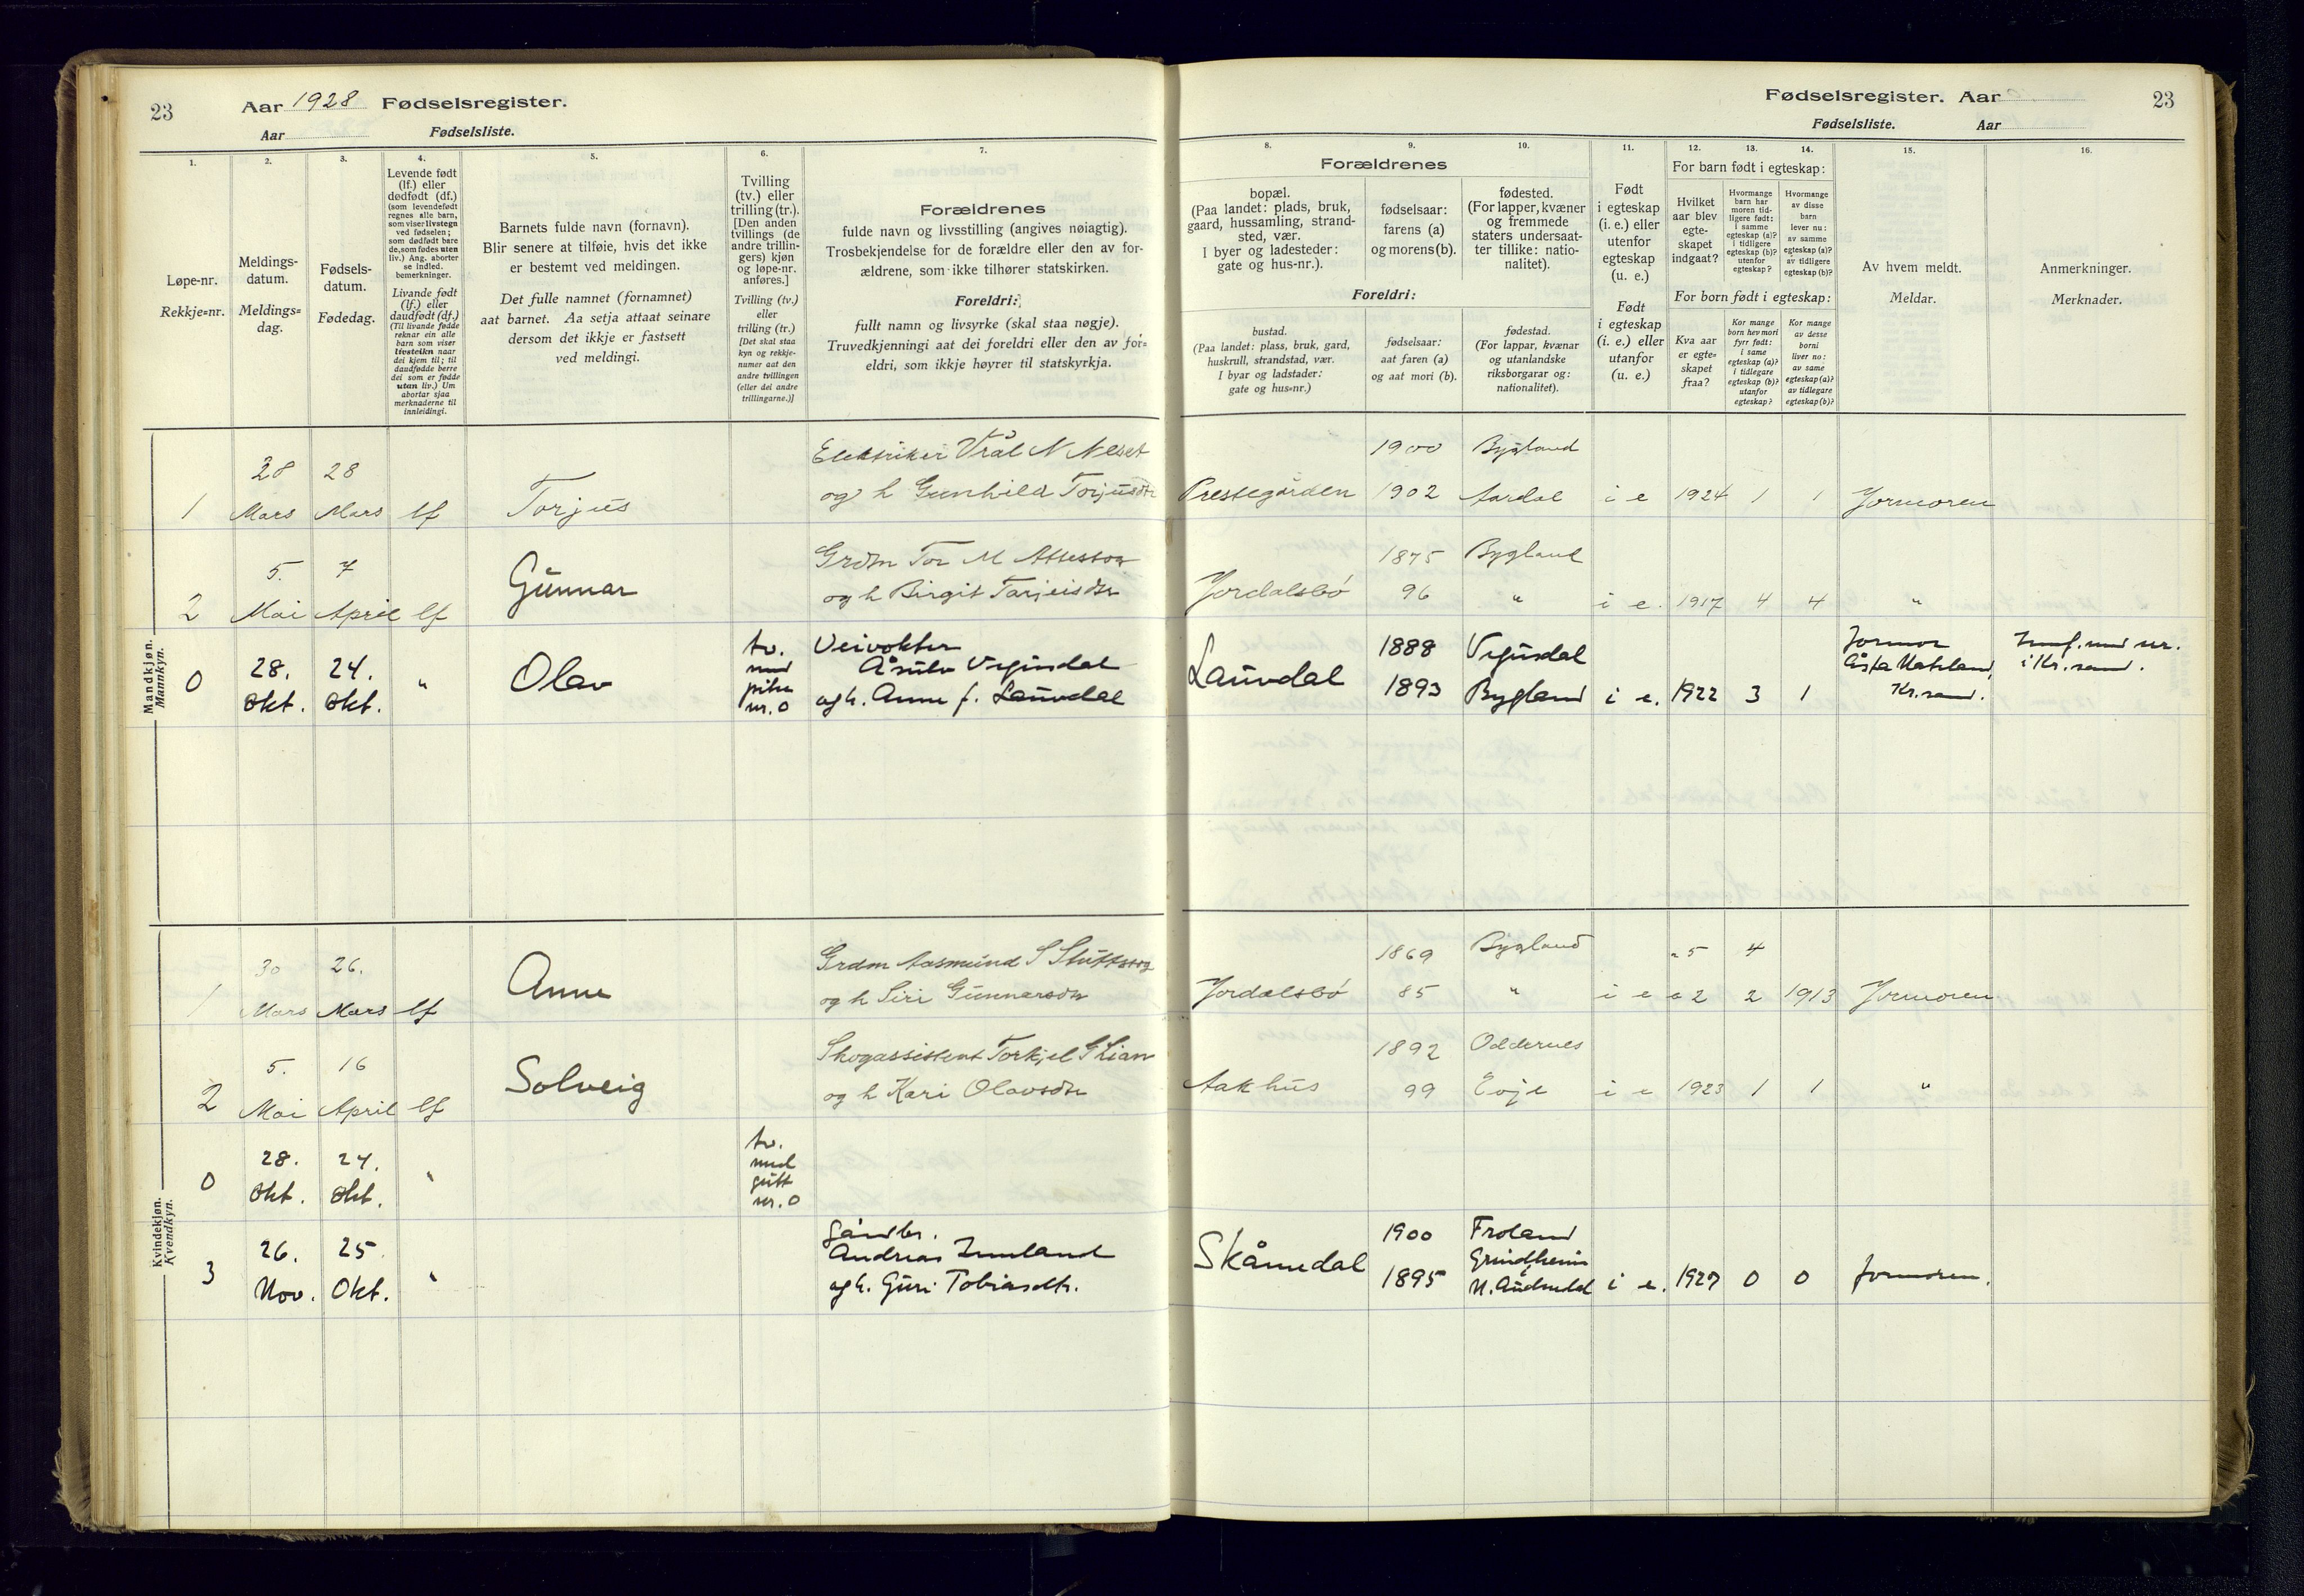 23
Aar 1928 Fødselsregister.
Aar Fødselsliste.
1.
Løpe-nr.
Rekkje=nr.
2.
Meldings-
datum.
Meldings=
dag.
3.
Fødsels-
datum.
Fødedag.
4.
Levende født
(lf.) eller
dødfødt (df.)
(som levendefødt
regnes alle barn,
som viser livstegn
ved fødselen;
som dødfødt bare
de, som fødes uten
liv.) Ang. aborter
se indled.
bemerkninger.
Livande født
(lf.) eller
daudfødt (df.)
(Til livande fødde
reknar ein alle
barn som viser
livsteikn naar
dei kjem til; til
daudfødde berre
dei som er fødde
utan liv.) Um
abortar sjaa
merknaderne til
innleidingi.
5.
Barnets fulde navn (fornavn).
Blir senere at tilføie, hvis det ikke
er bestemt ved meldingen.
Det fulle namnet (fornamnet)
aat barnet. Aa setja attaat seinare
dersom det ikkje er fastsett
ved meldingi.
6.
Tvilling
(tv.) eller
trilling (tr.).
[Den anden
tvillings (de
andre trillin-
gers) kjøn
og løpe-nr.
anføres.]
Tvilling (tv.)
eller
trilling (tr.)
[Det skal staa
kyn og rekkje-
numer aat den
andre tvillingen
(eller dei andre
trillingarne.)]
7.
Forældrenes
fulde navn og livsstilling (angives nøiagtig).
Trosbekjendelse for de forældre eller den av for-
ældrene, som ikke tilhører statskirken.
Foreldri:
fullt namn og livsyrke (skal staa nøgje).
Truvedkjenningi aat dei foreldri eller den av for=
eldri, som ikkje høyrer til statskyrkja.
Fødselsregister. Aar 23
Fødselsliste. Aar
8. 9. 10.
Forældrenes
bopæl.
(Paa landet: plads, bruk,
gaard, hussamling, strand-
sted, vær.
I byer og ladesteder:
gate og hus-nr.).
fødselsaar:
farens (a)
og morens (b).
fødested.
(For lapper, kvæner
og fremmede
staters undersaat-
ter tillike: natio-
nalitet).
Foreldri:
bustad.
(Paa landet: plass, bruk, gard,
huskrull, strandstad, vær.
I byar og ladstader:
gate og hus=nr.)
fødselsaar:
aat faren (a)
og aat mori (b).
fødestad.
(For lappar, kvænar
og utanlandske
riksborgarar og:
nationalitet).
11.
Født
i egteskap
(i. e.) eller
utenfor
egteskap
(u. e.)
Født
i egteskap
(i. e.) eller
utanfor
(u. e.)
12. 13. 14.
For barn født i egteskap:
Hvilket
aar blev
egte-
skapet
indgaat?
Hvormange
barn har
moren tid-
ligere født:
i samme
egteskap (a)?
i tidligere
egteskap (b)?
utenfor
egteskap?
Hvormange
av disse
barn
lever nu:
av samme
egteskap (a)?
av tidligere
egteskap (b)?
For born født i egteskap:
Kva aar
er egte=
skapet
fraa?
Kor mange
born hev mori
fyrr født:
i same
egteskap (a)?
i tidlegare
egteskap (b)?
utanfor
egteskap?
Kor mange
av desse
borni
liver no:
av same
egteskap (a)?
av tidlegare
egteskap (b)?
15.
Av hvem meldt.
Meldar.
16.
Anmerkninger.
Merknader.
Mandkjøn.
Mannkyn.
1 28 Mars 28 Mars lf Torjus
Elektriker Vrål N Neset 1900 Bygland
og h Gunhild Torjusdtr Prestegården 1902 Aardal i e 1924 1 1 Jormoren
2 5. Mai 7 April lf Gunnar
Grdm Tor M Attestog 1875 Bygland
og h Birgit Tarjeisdtr Jordalsbö 96 " i e. 1917 4 4 "
0 28. Okt. 24. Okt. " Olav
tv.
med
pike
nr. 0
Veivokter
Åsulv Vegusdal 1888 Vegusdal
og h. Anne f. Lauvdal Lauvdal 1893 Bygland i e. 1922 3 1
Jormor
Åsta Hateland,
Kr.sand.
Innf. med nr.
i Kr.sand.
Kvindekjøn.
Kvendkyn.
1 30 Mars 26. Mars lf Anne
Grdm Aasmund S Stuttstog 1869 Bygland "5 4
og h Siri Gunnarsdtr Jordalsbö 85 " i e a 2 2 1913 Jormoren
2 5. Mai 16 April lf Solveig
Skogassistent Torkjel G Lian 1892 Oddernes
og h Kari Olavsdtr Aakhus 99 Evje i e 1923 1 1 "
0 28. Okt. 24. Okt. "
tv.
med
gutt
nr. 0
3 26. Nov. 25. Okt. "
Gårdbr.
Andreas Imeland 1900 Froland
og h. Guri Tobiasdtr. Skåmedal 1895 Grindheim
N. Audnedal i e. 1927 0 0 Jormoren.